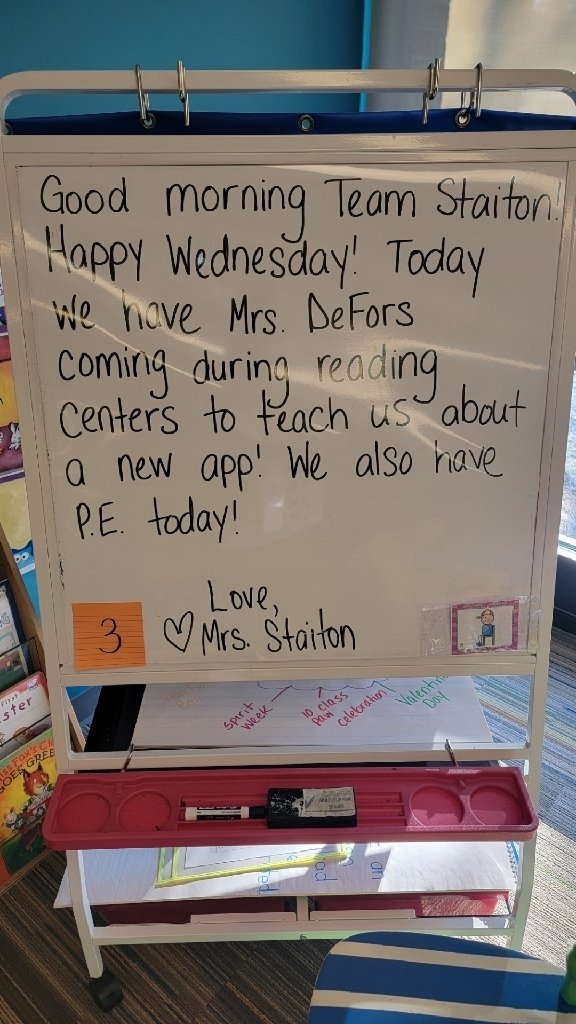 Good morning Team Staiton!
Happy Wednesday! Today
we have Mrs. DeFors
coming during reading
centers to teach us about
a new app! We also have
P.E. today!
Love,
♡ Mrs. Staiton
3
spirit week
10 class paw celebration
Valentine Day
GOES GREE